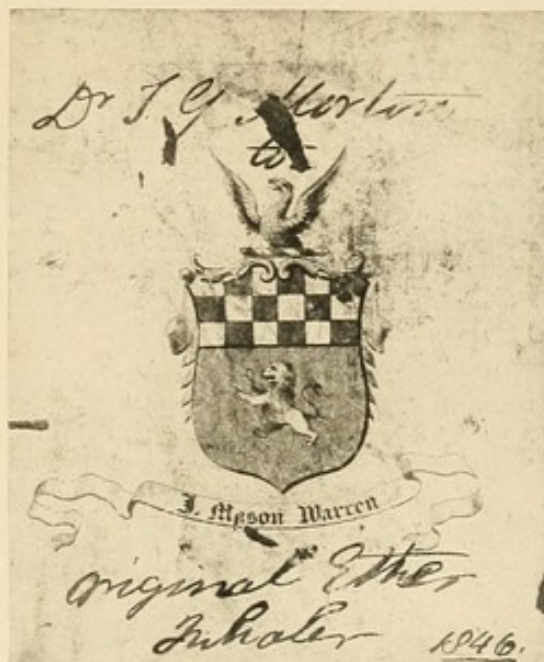 Dr T. G. Morton
to
J. Mason Warren
original Ether
Inhaler 1846.